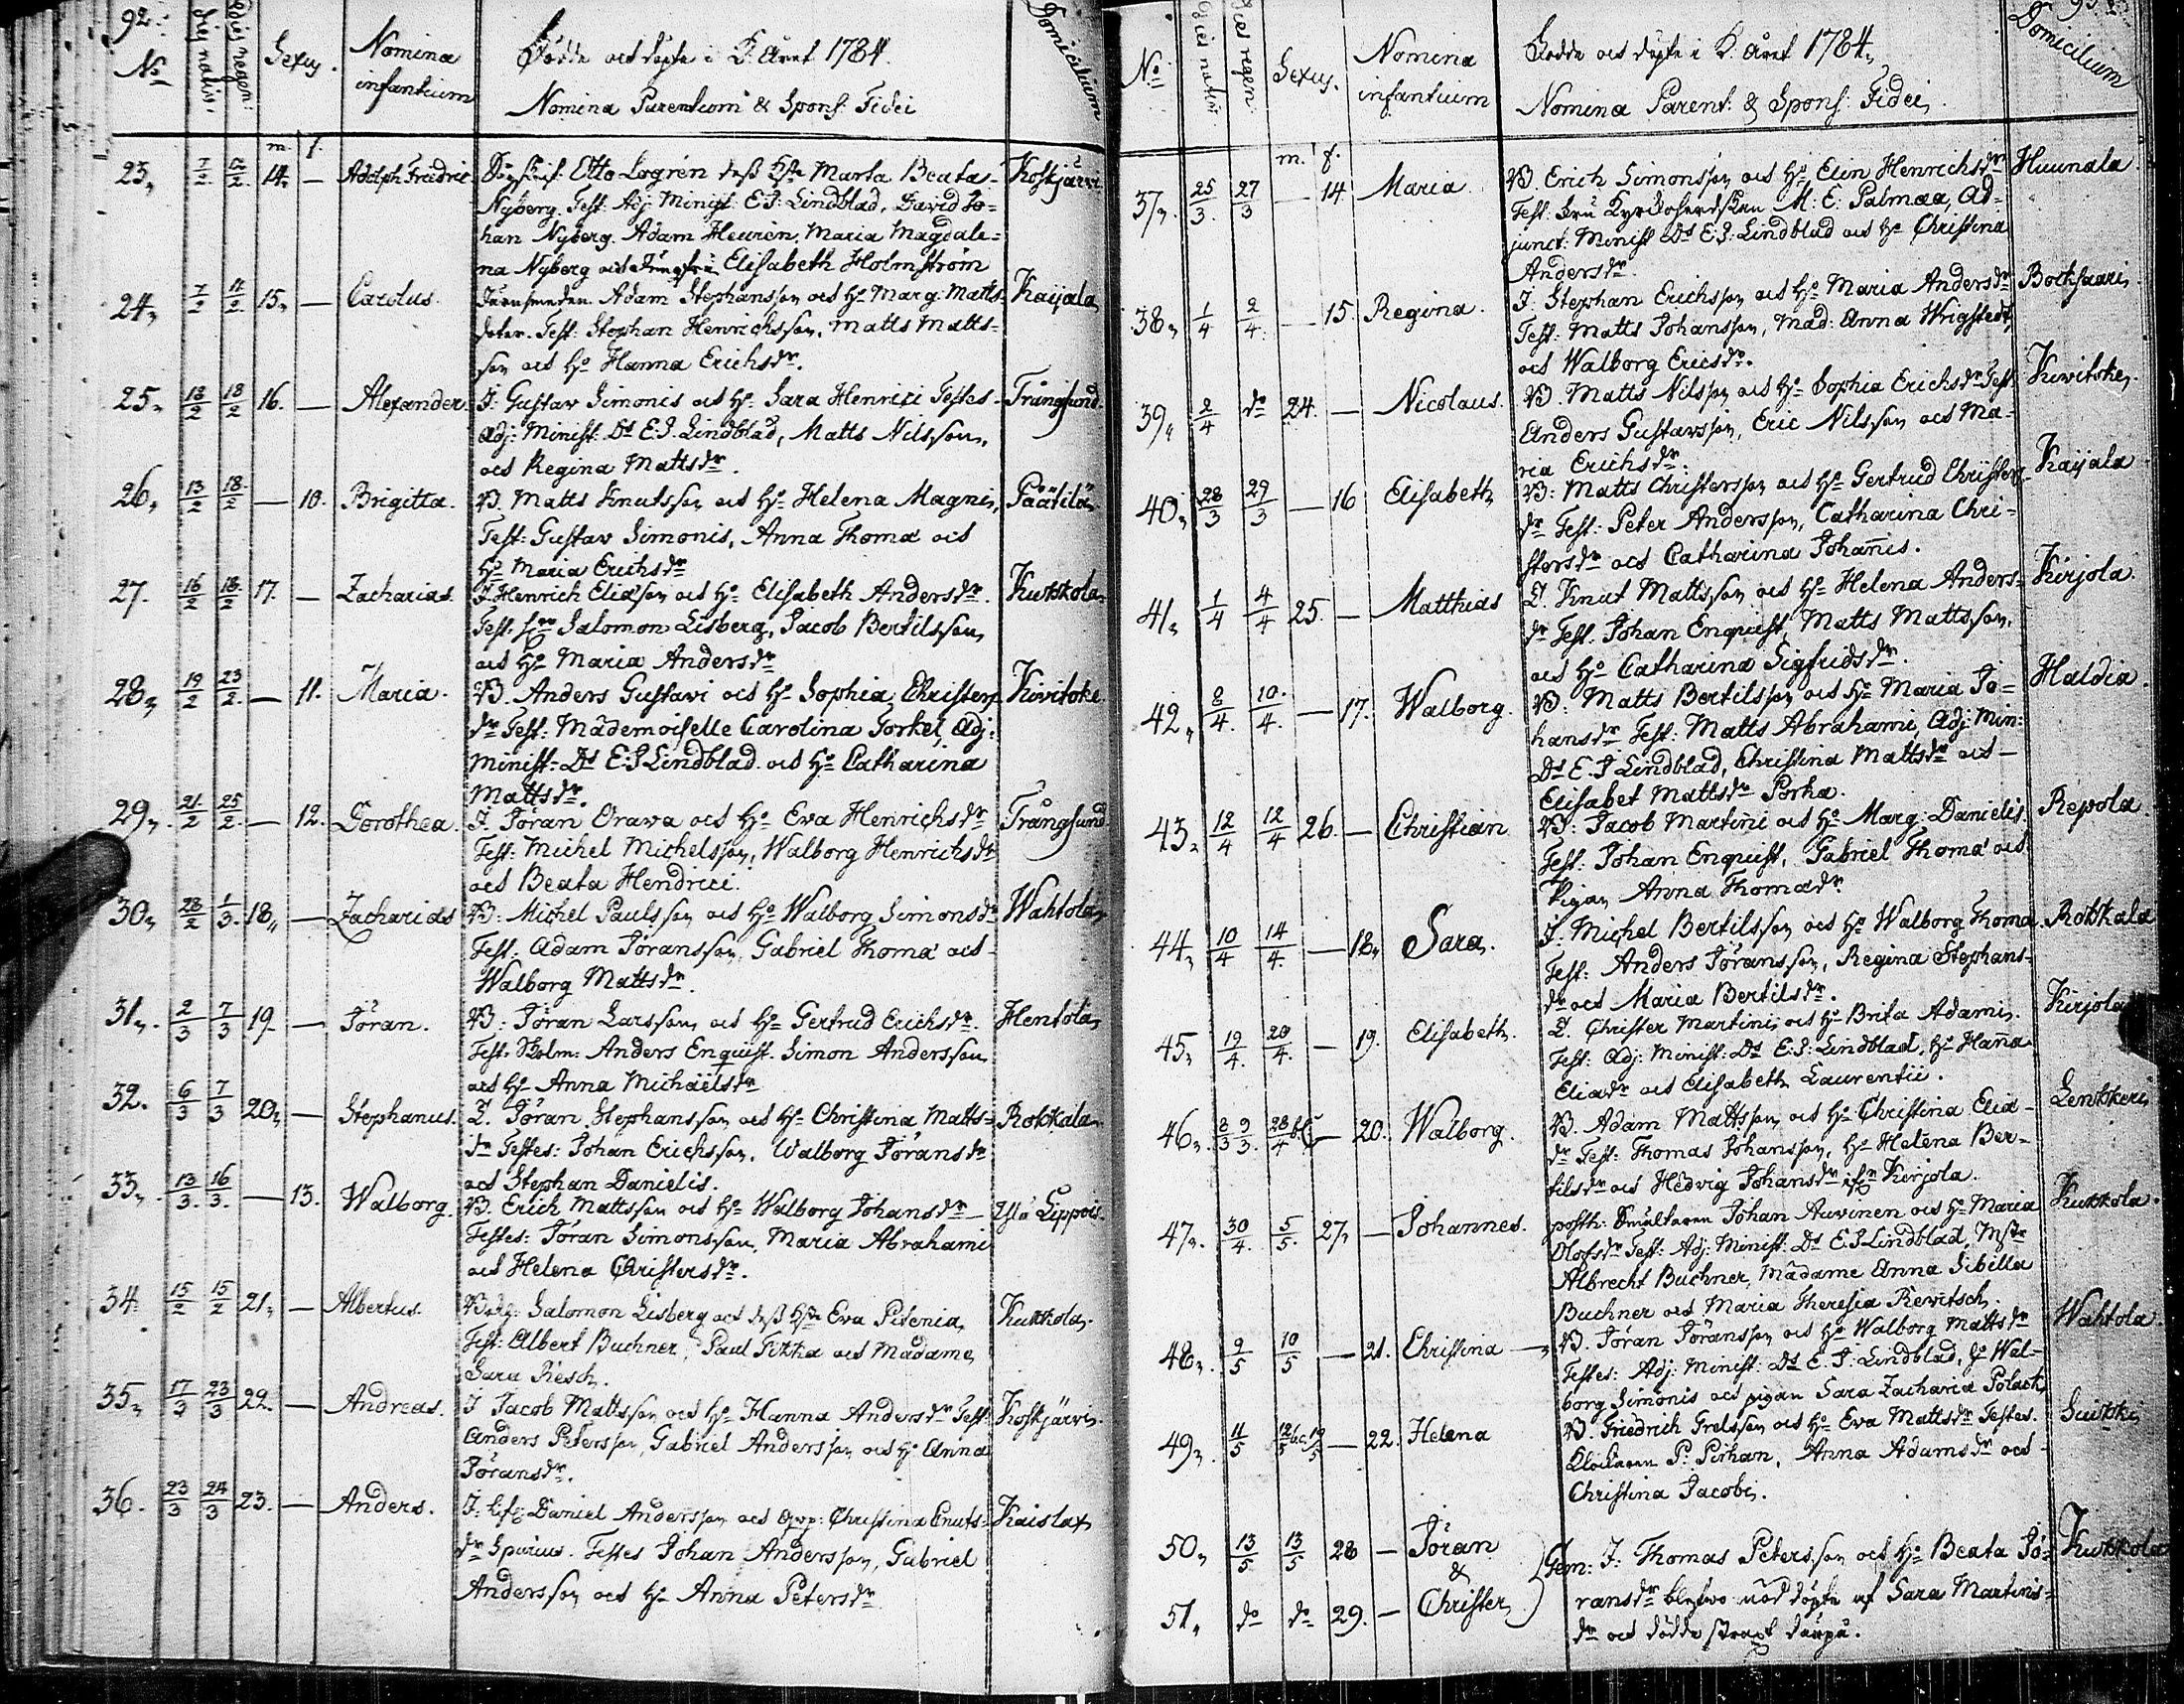 92.
No
Dies natus.
Dies regen:
Sexus.
Nomina infantium
Födde och döpte i K. Året 1784.
Nomina Parentum & Spons: Fidei
Domicilium
m. f.
23, 7/2 12/2 14. — Adolph Fredric Otto Logrén deß Hstr Marta Beata Koskjärvi
Nyberg. Test. Adj: Minist: E: J: Lindblad, David Jo=
han Nyberg. Adam Heurén, Maria Magdale=
na Nyberg och Jungfru Elisabeth Holmström
24, 7/2 11/2 15, — Carolus. Adam Stephansson och Ho Marg: Matts= Kaijala
doter. Test: Stephan Henrichsson, Matts Matts=
son och Ho Hanna Erichsdr.
25, 12/2 18/2 16. — Alexander. I. Gustav Simonis och Ho Sara Henrici Testes Trångsund.
Adj: Minist: Ds E: J. Lindblad, Matts Nilsson,
och Regina Mattsdr.
26, 13/2 18/2 — 10. Brigitta. B. Matts Knutsson och Ho Helena Magni, Päätilä
Test: Gustav Simonis, Anna Thomæ och
Ho Maria Erichsdr
27. 16/2 18/2 17. — Zacharias. I. Henrich Eliasson och Ho Elisabeth Andersdr. Kukkola
Test: Salomon Lisberg, Jacob Bertilsson,
och Ho Maria Andersdr
28, 19/2 23/2 — 11. Maria. B. Anders Gustavi och Ho Sophia Christers Kiwitoke
dr Test: Mademoiselle Carolina Torkel, Adj:
Minist: Ds E: J Lindblad och Ho Catharina
Mattsdr.
29, 21/2 25/2 — 12. Dorothea. I. Jöran Orawa och Ho Eva Henrichsdr Trångsund
Test: Michel Michelsson, Walborg Henrichsdr
och Beata Hendrici.
30, 28/2 1/3 18,, — Zacharias B: Michel Paulsson och Ho Walborg Simonsdr Wahtola
Test: Adam Jöransson, Gabriel Thomæ och
Walborg Mattsdr.
31, 2/3 7/3 19. — Jöran. B: Jöran Larsson och Ho Gertrud Erichsdr. Hentola
Test: Skolm: Anders Enquist, Simon Andersson
och Ho Anna Michaëlsdr
32. 6/3 7/3 20, — Stephanus. I. Jöran Stephansson och Ho Christina Matts= Rokkala
dr Testes: Johan Erichsson, Walborg Jöransdr
och Stephan Danielis.
33, 13/3. 16/3. — 13. Walborg. B. Erich Mattsson och Ho Walborg Johansdr Ylä Lippois.
Testes: Jöran Simonsson, Maria Abrahami
och Helena Christersdr.
34. 15/2 15/2 21, — Albertus. Salomon Lisberg och deß Hstr Eva Pitenia Kukkola
Test: Albert Buchner, Paul Tikka och Madame,
Sara Resch.
35, 17/3 23/3 22. — Andreas. I Jacob Mattsson och Ho Hanna Andersdr Test: Koskjärvi
Anders Petersson, Gabriel Andersson och Ho Anna
Jöransdr.
36. 23/3 24/3 23. — Anders. I: Daniel Andersson och Christina Enuts= Kaislax
dr Spurius. Testes Johan Andersson, Gabriel
Andersson och Ho Anna Petersdr
No
Dies nativi.
Dies regen:
Sexus.
Nomina infantium
Födde och döpte i K. Året 1784.
Nomina Parent: & Spons: Fidei,
Domicilium
m. f.
37, 25/3. 27/3 — 14 Maria. B. Erich Simonsson och Ho Elin Henrichsdr Huunala
Test: Fru Kyrkoherdskan M: E: Palmæa, Ad=
junct: Minist Ds E: J: Lindblad och Ho Christina
Andersdr.
38, 1/4 2/4. — 15. Regina. I. Stephan Erichsson och Ho Maria Andersdr Bocksaari
Test: Matts Johansson, Mad: Anna Wrigstedt,
och Walborg Ericsdr.
39, 2/4 do 24. — Nicolaus. B. Matts Nilsson och Ho Sophia Erichsdr Test: Kiwitoke,
Anders Gustavsson, Eric Nilsson och Ma=
ria Erichsdr.
40, 28/3 29/3 — 16 Elisabeth B: Matts Christersson och Ho Gertrud Christers Kaijala
dr Test: Peter Andersson, Catharina Chri=
stersdr och Catharina Johannis.
41, 1/4 4/4 25. — Matthias I. Knut Mattsson och Ho Helena Anders= Kirjola.
dr Test. Johan Enquist, Matts Mattsson,
och Ho Catharina Sigfridsdr.
42, 8/4. 10./4. — 17. Walborg. B: Matts Bertilsson och Ho Maria Jo= Haldia.
hansdr Test: Matts Abrahami, Adj: Min:
Ds E: J Lindblad, Christina Mattsdr och —
Elisabet Mattsdr Porka.
43, 12/4 12/4 26. — Christian B: Jacob Martini och Ho Marg: Danielis Repola
Test: Johan Enquist, Gabriel Thomæ och
Pigan Anna Thomædr
44, 10/4 14/4. — 18, Sara. I: Michel Bertilsson och Ho Walborg Thomæ Rokkala
Test: Anders Jöransson, Regina Stephans=
dr och Maria Bertilsdr.
45, 19/4. 20/4. — 19. Elisabeth. I. Christer Martini och Ho Brita Adami. Kirjola
Test: Adj: Minist: Ds E: J: Lindblad, Ho Hanna
Eliædr och Elisabeth Laurentii.
46, 8/3 9/3. 28/4 — 20. Walborg. B. Adam Mattsson och Ho Christina Eliæ= Lenkkeri
dr Test: Thomas Johansson, Ho Helena Ber=
tilsdr och Hedvig Johansdr Kirjola.
47, 30/4. 5/5. 27, — Johannes. posth: Johan Auvinen och Ho Maria Kukkola.
Olofsdr Test: Adj: Minist: Ds E: J Lindblad, Mstr
Albrecht Buchner, Madame Anna Sibilla
Buchner och Maria Theresia Rewitsch.
48, 9/5 10/5 — 21. Christina — B. Jöran Jöransson och Ho Walborg Mattsdr Wahtola.
Testes: Adj: Minist: Ds E. J: Lindblad, Ho Wal=
borg Simonis och pigan Sara Zachariæ Polack,
49, 11/5 12/5 19/5 — 22. Helena B. Friedrich Grelsson och Ho Eva Mattsdr Testes. Suikki
Klockaren P: Pirhan, Anna Adamsdr och
Christina Jacobi.
50, 13/5 13/5 28 — Jöran Gem: I: Thomas Petersson och Ho Beata Jö= Kukkola
&
51, do do 29. — Christer, ransdr blefwo nöd döpte af Sara Martins=
dr och dödde straxt därpå.